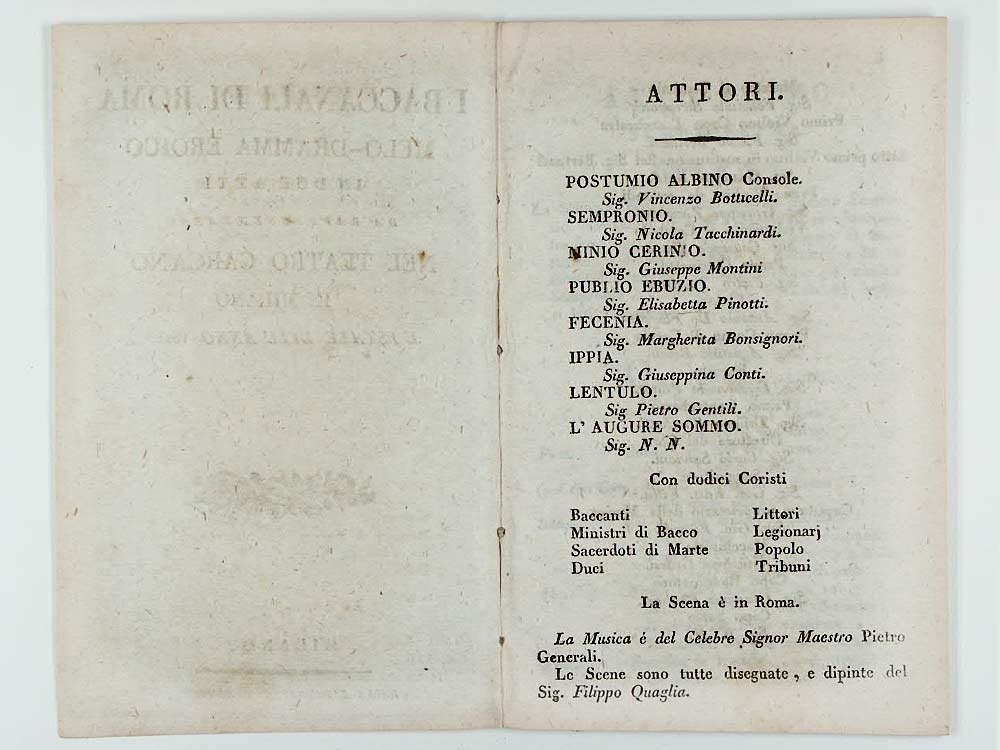 ATTORI.
POSTUMIO ALBINO Console.
Sig. Vincenzo Botticelli.
SEMPRONIO.
Sig. Nicola Tacchinardi.
MINIO CERINIO.
Sig. Giuseppe Montini
PUBLIO EBUZIO.
Sig. Elisabetta Pinotti.
FECENIA.
Sig. Margherita Bonsignori.
IPPIA.
Sig. Giuseppina Conti.
LENTULO.
Sig Pietro Gentili.
L' AUGURE SOMMO.
Sig. N. N.
Con dodici Coristi
Baccanti Littori
Ministri di Bacco Legionarj
Sacerdoti di Marte Popolo
Duci Tribuni
La Scena è in Roma.
La Musica é del Celebre Signor Maestro Pietro
Generali.
Le Scene sono tutte disegnate, e dipinte del
Sig. Filippo Quaglia.